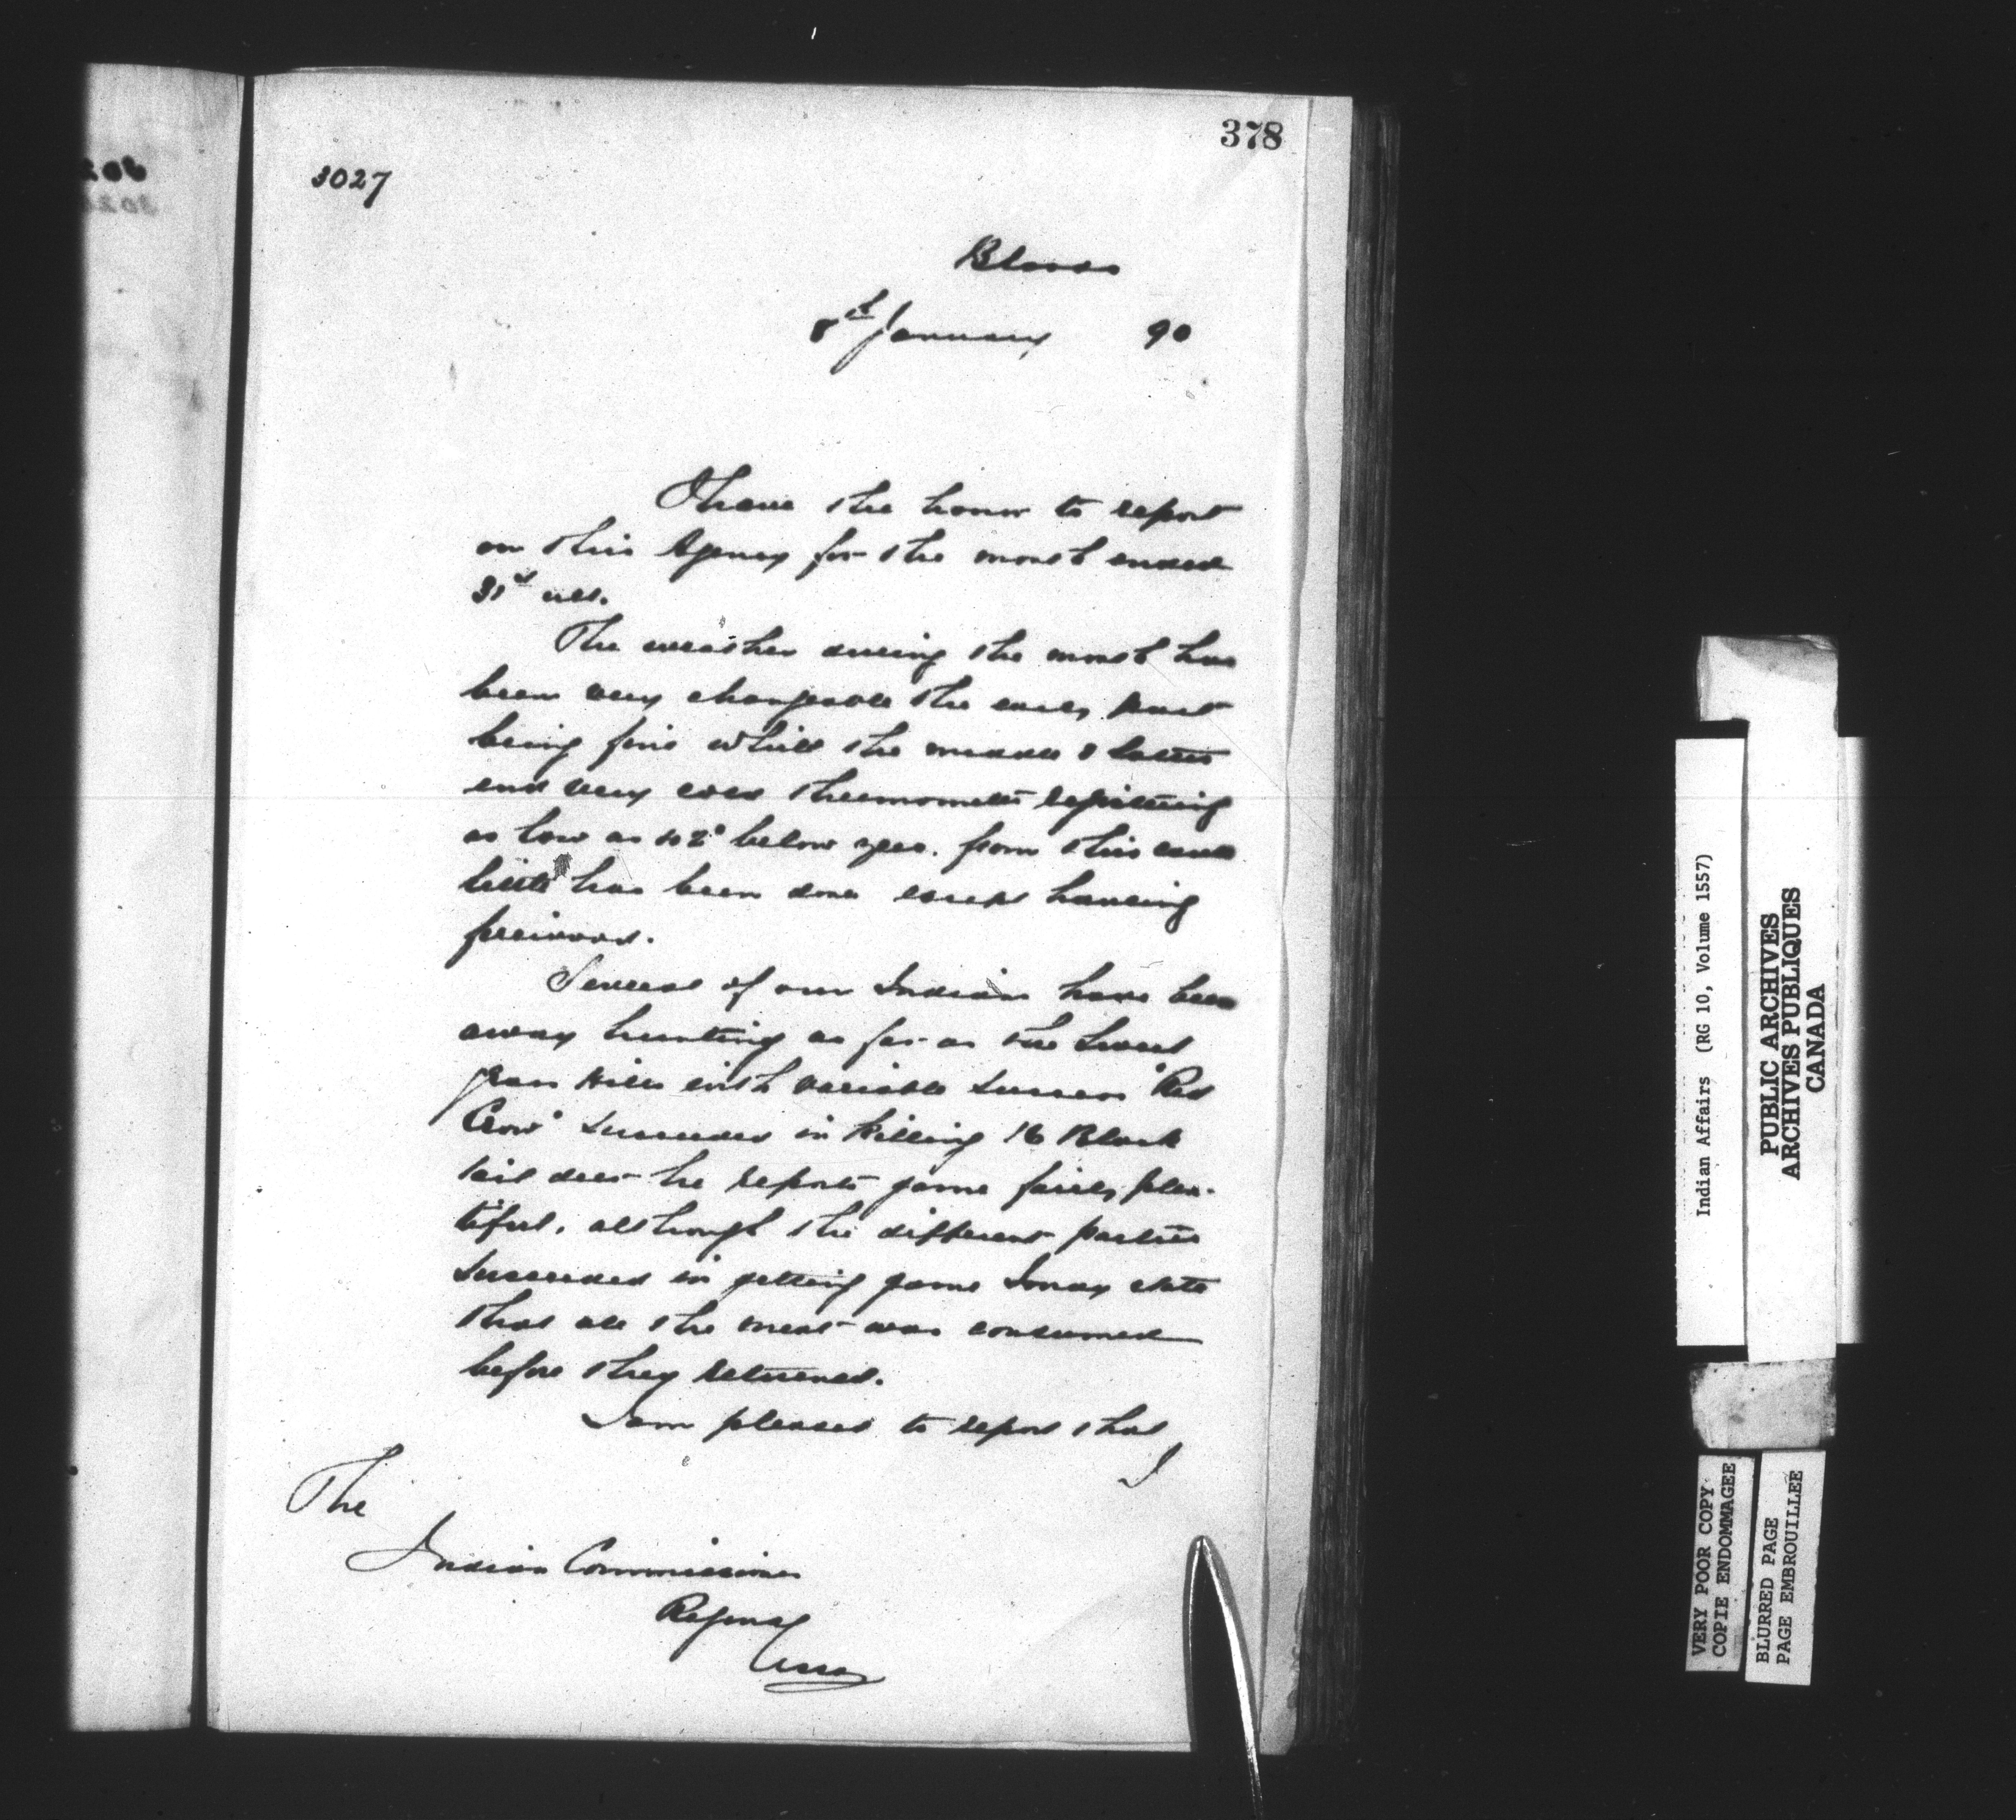 378
3027
Bloods
8th January 90
I have the honor to report
on this Agency for the month ended
31st ult.
The weather during the month has
been very changeable the early part
being fine while the middle & latter
end very cold thermometer registering
as low as 42° below zero. from this cause
little has been done except hauling
firewood.
Several of our Indians have been
away hunting as far as the Sweet
Grass Hills with variable success "Red
Crow" succeeded in killing 16 Black
tail deer he reports game fairly plen-
tiful, although the different parties
succeeded in getting game I may state
that all the meat was consumed
before they returned.
I am pleased to report that
I
The
Indian Commissioner
Regina
Assa
Indian Affairs (RG 10, Volume 1557)
PUBLIC ARCHIVES
ARCHIVES PUBLIQUES
CANADA
VERY POOR COPY
COPIE ENDOMMAGEE
BLURRED PAGE
PAGE EMBROUILLÉE